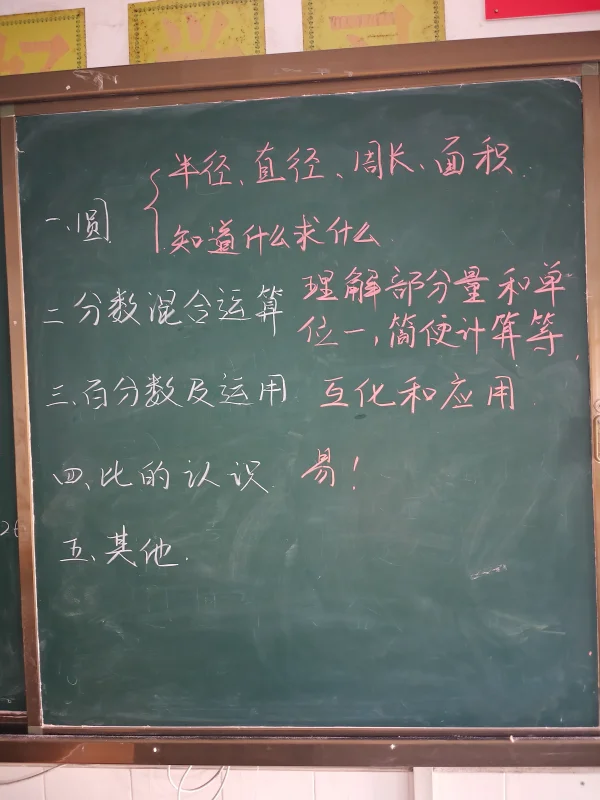 一、圆
半径、直径、周长、面积
知道什么求什么
二分数混合运算 理解部分量和单
位一，简便计算等，
三、百分数及运用 互化和应用
四、比的认识 易！
五、其他.